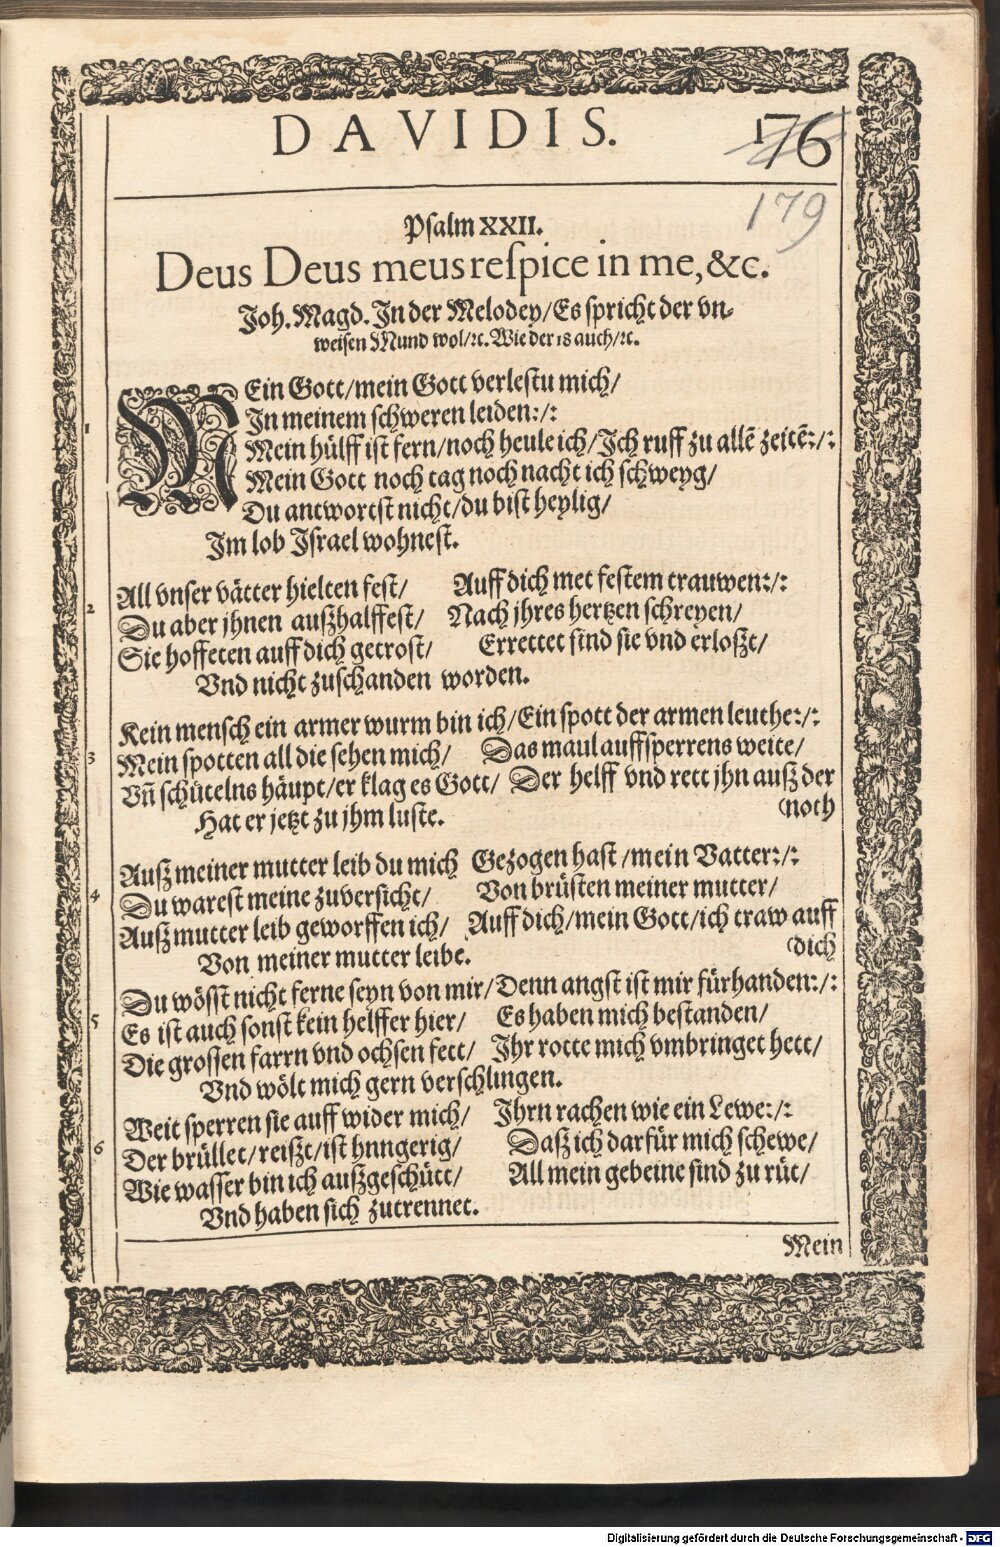 DAVIDIS. 176
179
Psalm XXII.
Deus Deus meus reſpice in me, &c.
Joh. Magd. In der Melodey/ Es spricht der vn-
weisen Mund wol/ ꝛc. Wie der 18 auch/ ꝛc.
MEin Gott/ mein Gott verlestu mich/
In meinem schweren leiden:/:
1 Mein hülff ist fern/ noch heule ich/ Ich ruff zu allẽ zeitẽ:/:
Mein Gott noch tag noch nacht ich schweyg/
Du antwortst nicht/ du bist heylig/
Im lob Israel wohnest.
All vnser vätter hielten fest/ Auff dich met festem trauwen:/:
2 Du aber jhnen außhalffest/ Nach jhres hertzen schreyen/
Sie hoffeten auff dich getrost/ Errettet sind sie vnd erloßt/
Vnd nicht zuschanden worden.
Kein mensch ein armer wurm bin ich/ Ein spott der armen leuthe:/:
3 Mein spotten all die sehen mich/ Das maul auffsperrens weite/
Vñ schütelns häupt/ er klag es Gott/ Der helff vnd rett jhn auß der
Hat er jetzt zu jhm luste. (noth
Auß meiner mutter leib du mich Gezogen hast/ mein Vatter:/:
4 Du warest meine zuversicht/ Von brüsten meiner mutter/
Auß mutter leib geworffen ich/ Auff dich/ mein Gott/ ich traw auff
Von meiner mutter leibe. (dich
Du wösst nicht ferne seyn von mir/ Denn angst ist mir fürhanden:/:
5 Es ist auch sonst kein helffer hier/ Es haben mich bestanden/
Die grossen farrn vnd ochsen fett/ Ihr rotte mich vmbringet hett/
Vnd wölt mich gern verschlingen.
Weit sperren sie auff wider mich/ Ihrn rachen wie ein Lewe:/:
6 Der brüllet/ reißt/ ist hnngerig/ Daß ich darfür mich schewe/
Wie wasser bin ich außgeschütt/ All mein gebeine sind zu rüt/
Vnd haben sich zutrennet.
Mein
Digitalisierung gefördert durch die Deutsche Forschungsgemeinschaft - DFG